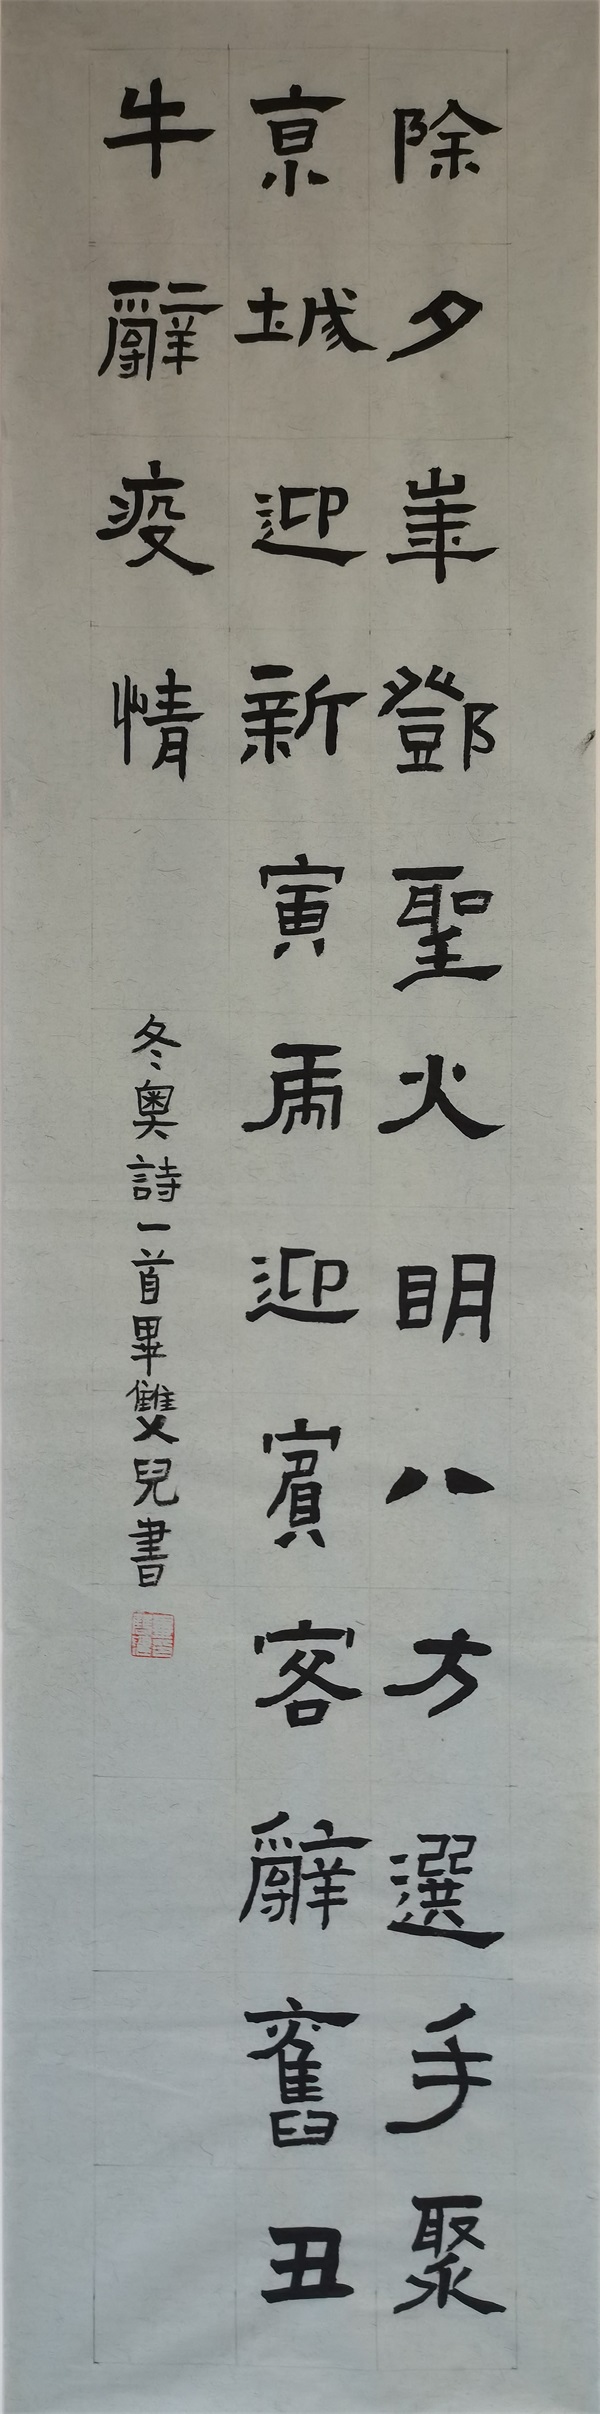 除夕崋鄧聖火明八方選手聚
京城迎新寅虎迎賓客辭舊丑
牛辭疫情
冬奧詩一首畢雙兒書